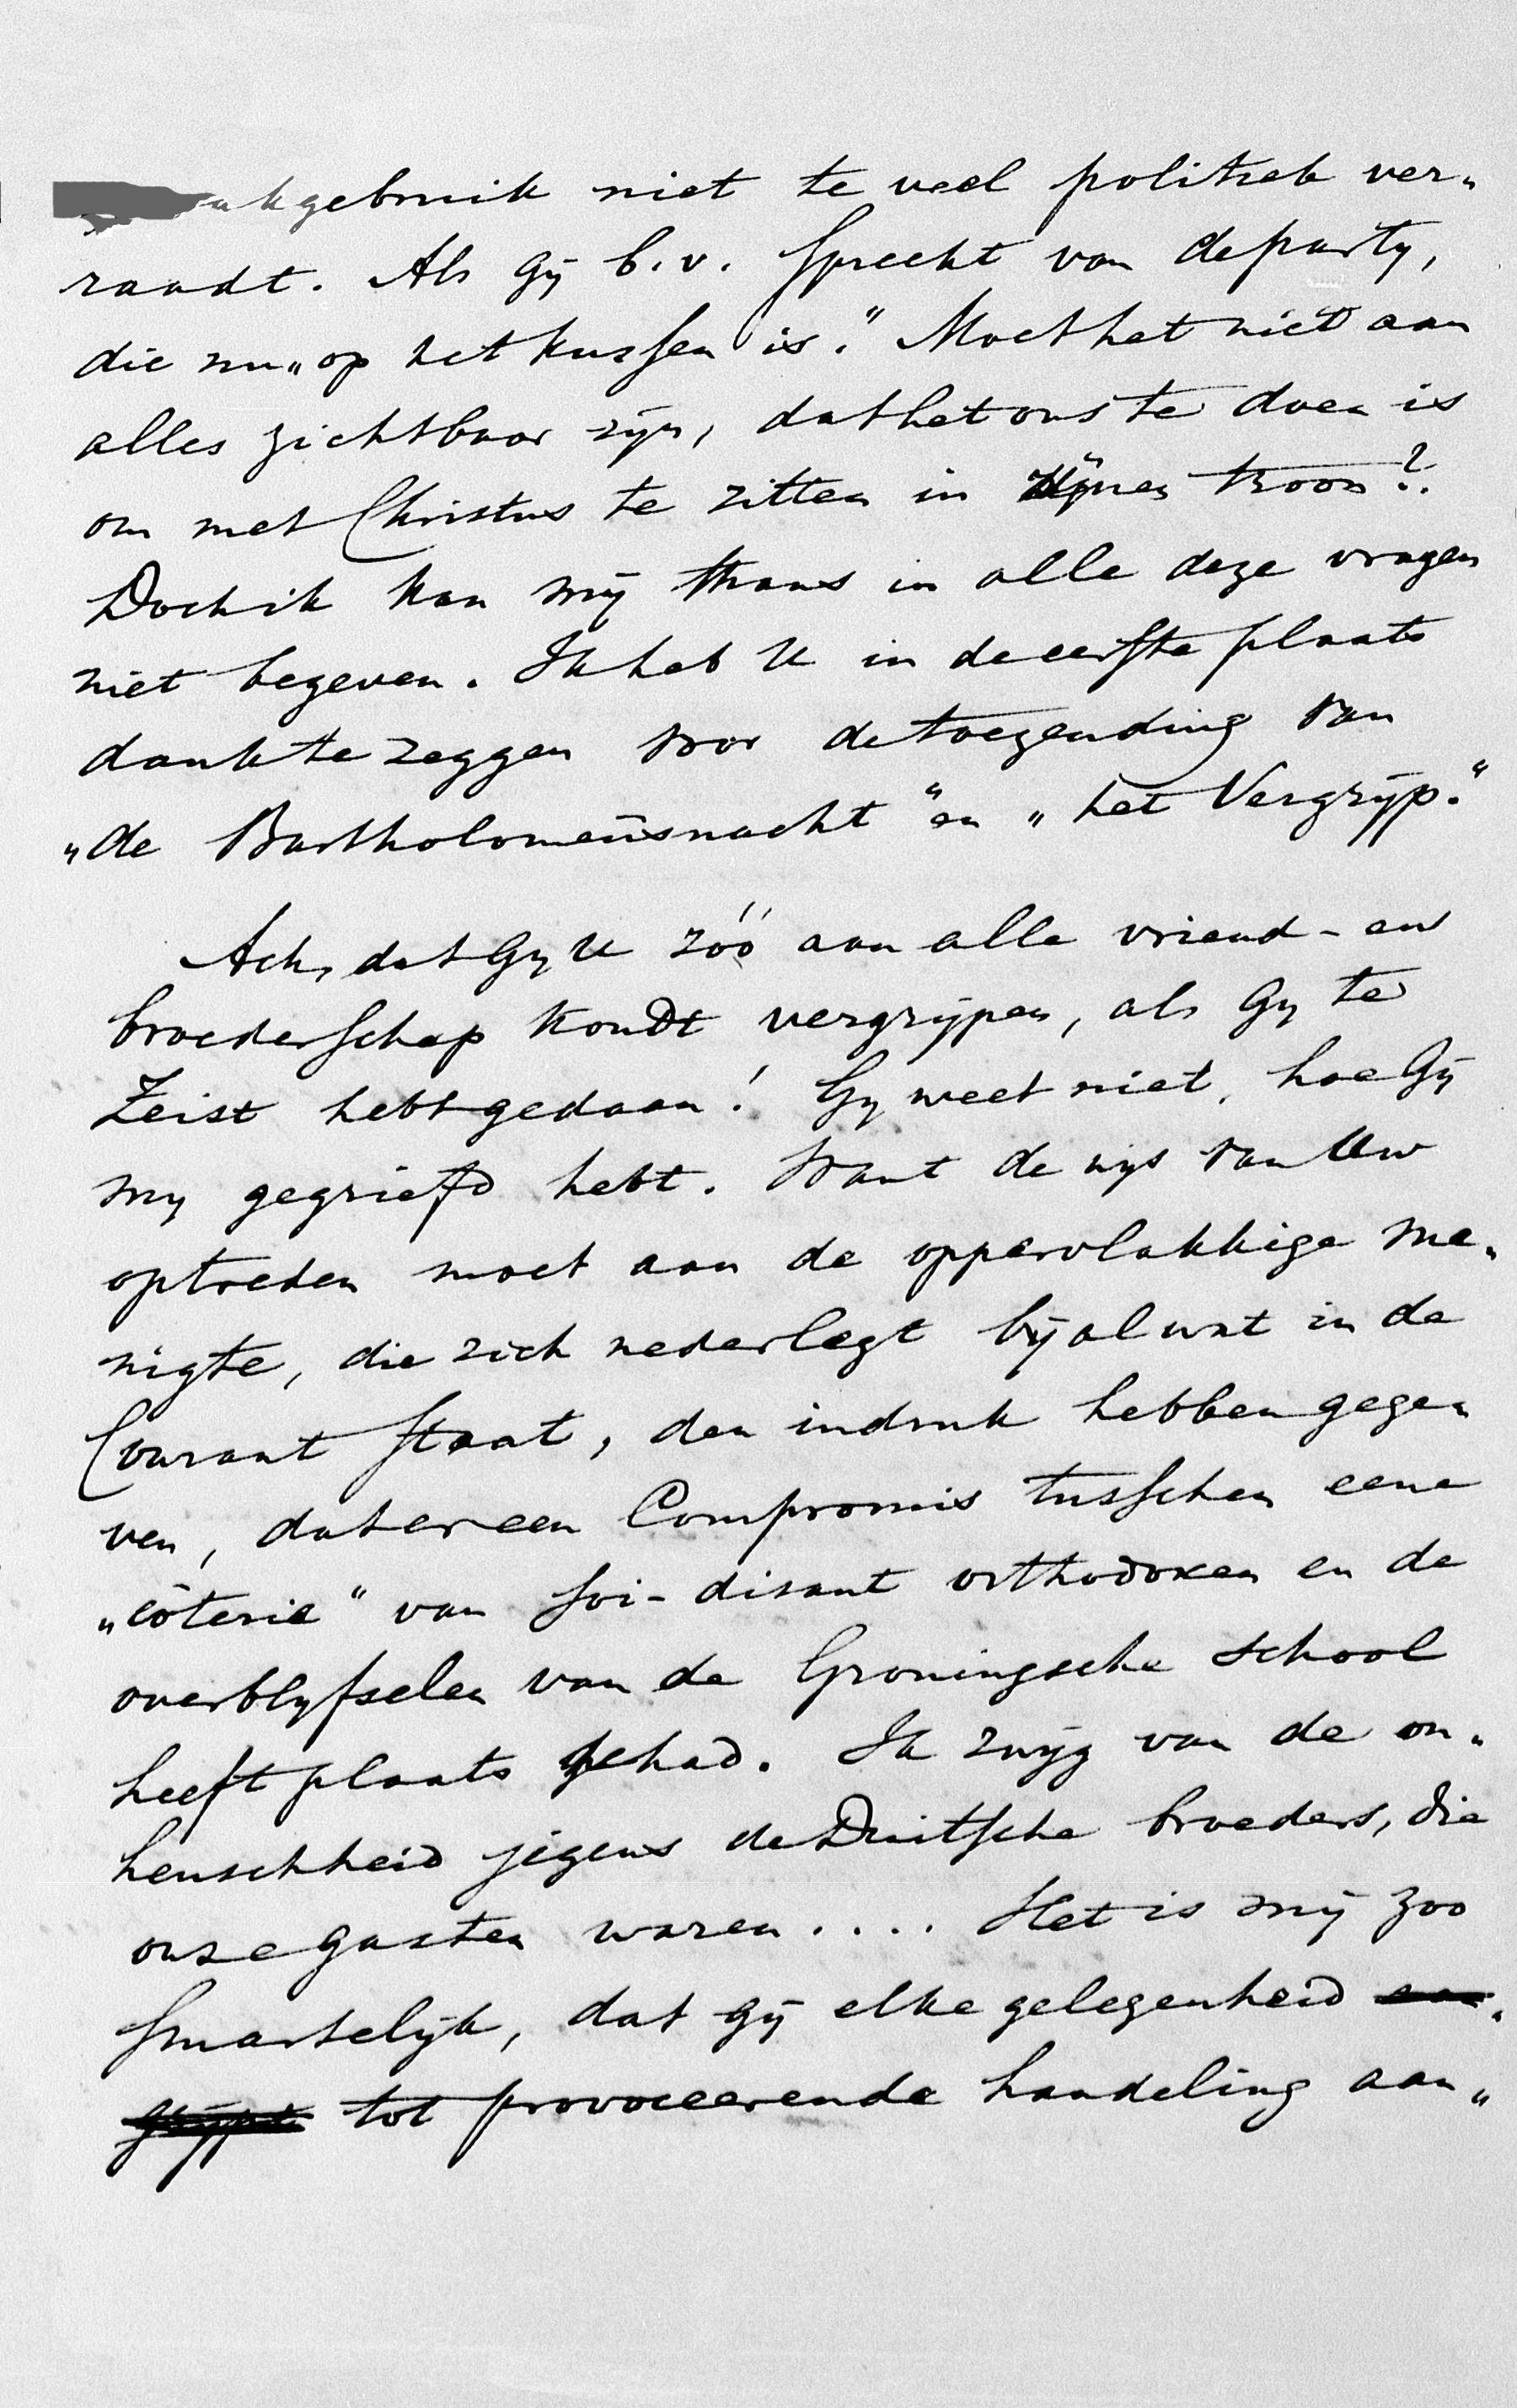 niet te veel politiek ver„
raadt. Als gij b.v. spreekt van de party,
die nu „op het kussen is." Moet het niet aan
alles zichtbaar zijn, dat het ons te doen is
om met Christus te zitten in Zijnen troon?
Doch ik kan mij thans in alle deze vragen
niet begeven. Ik heb U in de eerste plaats
dank te zeggen voor de toezending van
„de Bartholomeüsnacht" en „het Vergrijp."
Ach, dat Gy U zóó aan alle vriend- en
broederschap kondt vergrijpen, als Gy te
Zeist hebt gedaan! Gy weet niet, hoe Gij
my gegriefd hebt. Want de wijs van Uw
optreden moet aan de oppervlakkige me„
nigte, die zich nederlegt bij al wat in de
Courant staat, den indruk hebben gege„
ven, dat er een Compromis tusschen eene
„côterie" van soi-disant orthodoxen en de
overblyfselen van de Groningsche school
heeft plaats gehad. Ik zwijg van de on„
heuschheid jegens de Duitsche broeders, die
onze gasten waren.... Het is mij zoo
smartelijk, dat gij elke gelegenheid aan„
grijpt tot provoceerende handeling aan„